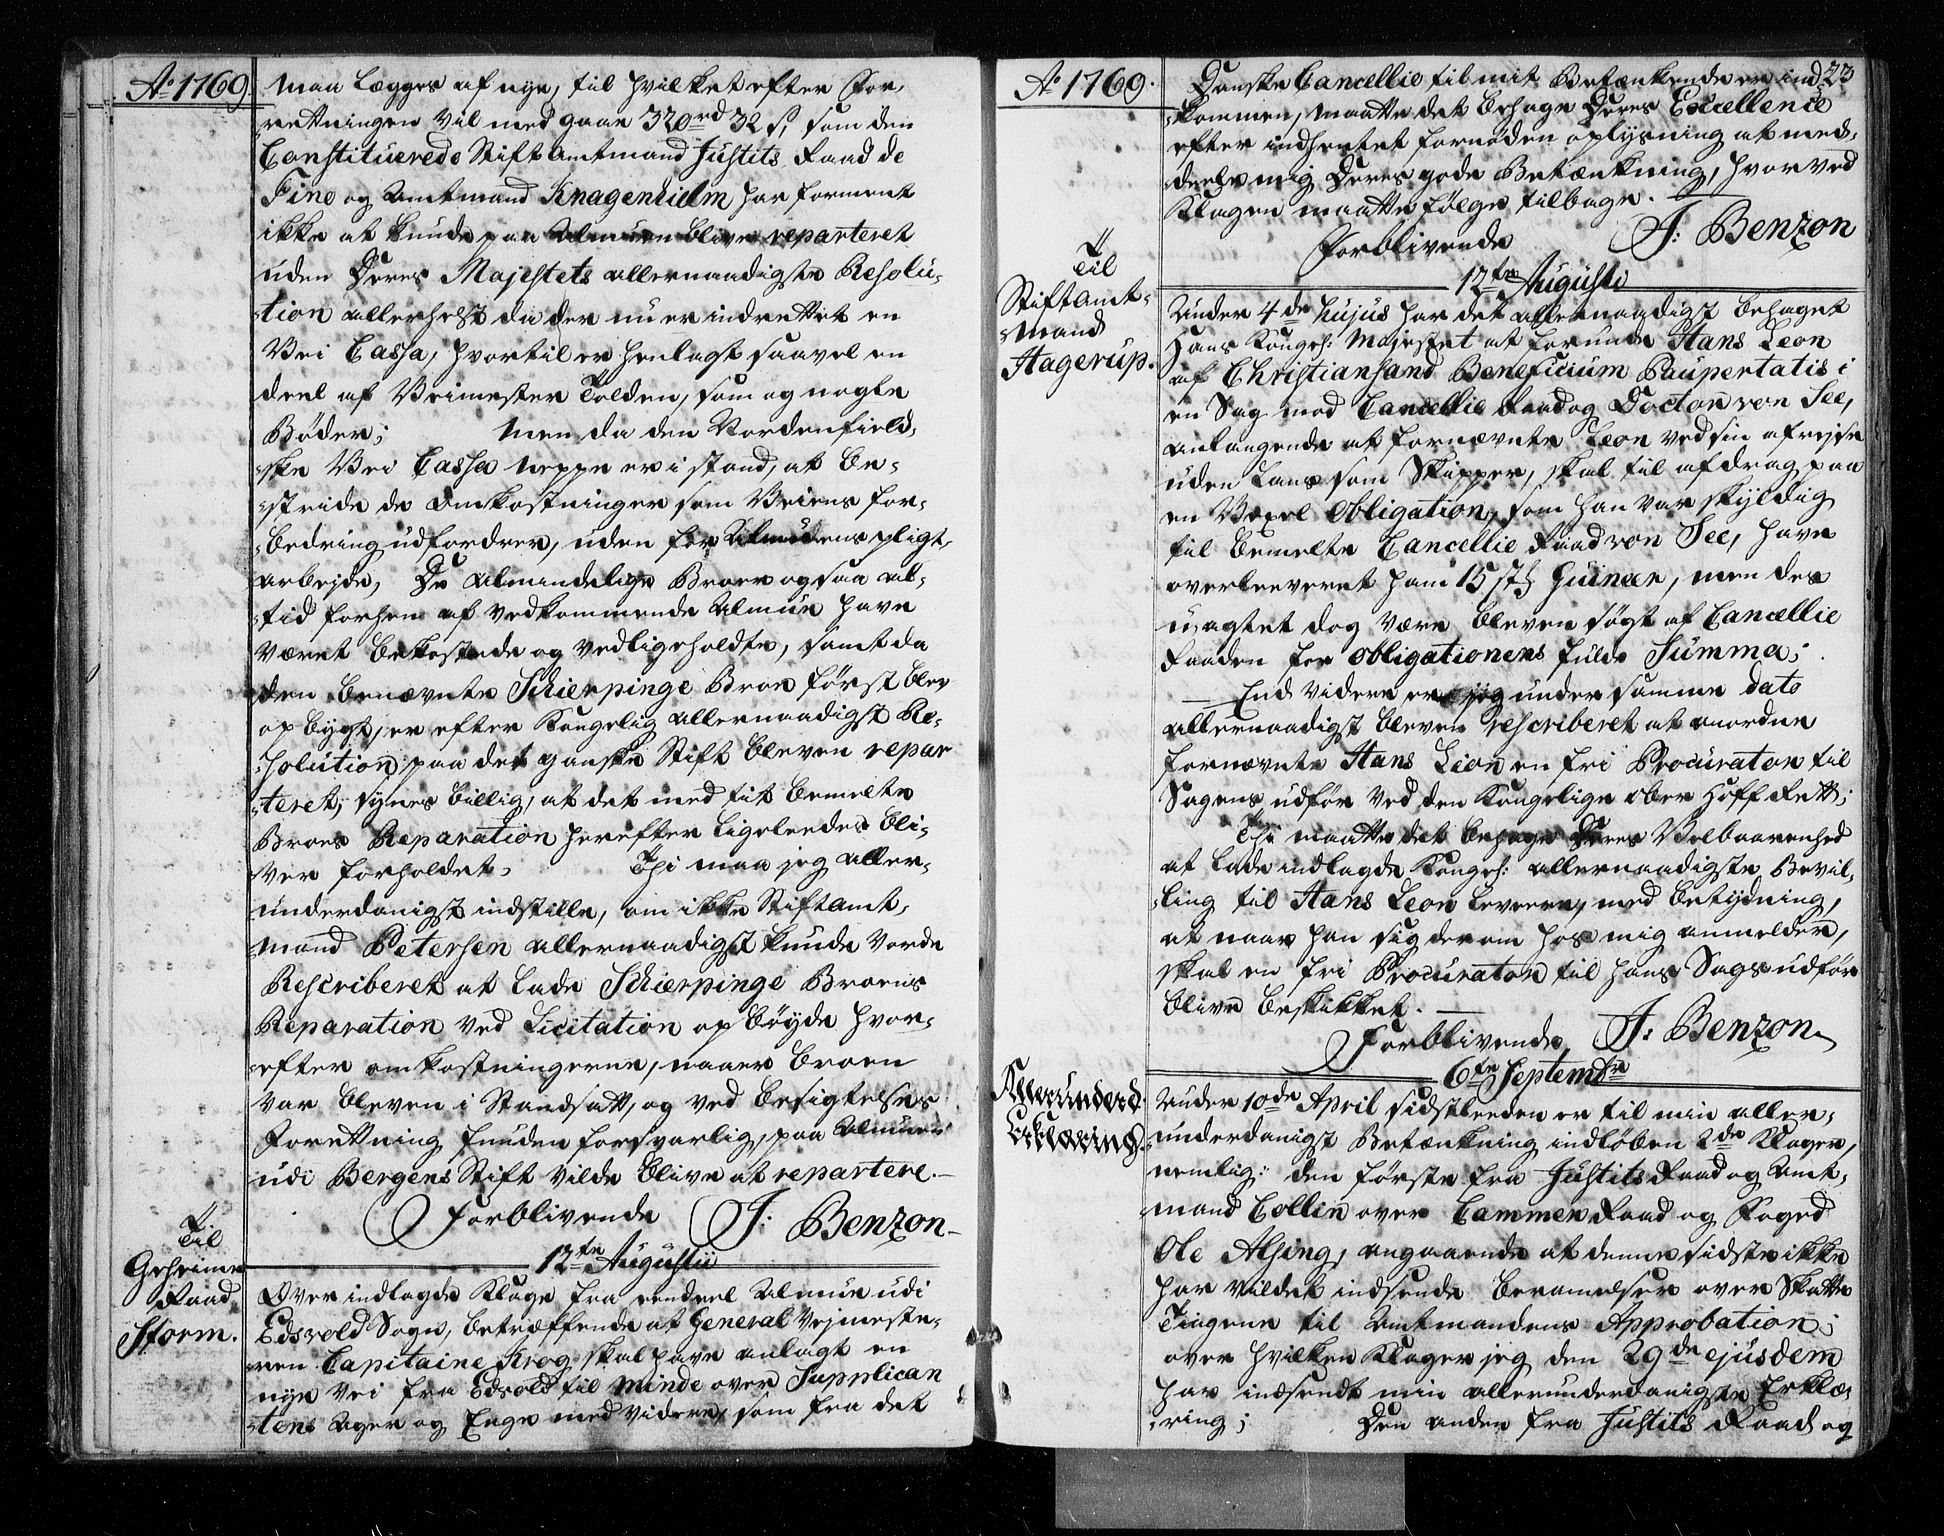 Ao 1769
maa lægges af nye, til hvilket efter For-
retningen vil med gaae 320rd 32 s, som den
Constituerede StiftAmtmand Justits Raad de
Fine og Amtmand Knagenhielm har formeent
ikke at kunde paa Almuen blive reparteret
uden Deres Majestets allernaadigste Resolu-
tion allerhelst da der nu er indrettet en
Vei Cassa, hvortil er henlagt saavel en
deel af Veimester Tolden, som og nogle
Bøder; Men da den Nordenfield-
ske Vei Cassa neppe er i stand, at be-
stride de Omkostninger som Veiens for-
bedring udfordrer, uden for Almuens pligt-
arbejde, De almindelige Broer ogsaa al-
tid forhen af vedkommende Almue have
været bekostede og vedligeholdte, samt da
den benævnte Schierpinge Broe først blev
opbygt, er efter Kongelig allernaadigst Re-
solution, paa det ganske Stift bleven repar
teret; synes billig, at det med tit bemelte
Broes Reparation herefter ligeleedes bli-
ver forholdet, Thi maa jeg aller-
underdanigst indstille, om ikke Stiftamt-
mand Petersen allernaadigst kunde vorde
Rescriberet at lade Schierpinge Broens
Reparation ved Licitation opbøyde hvor-
efter omkostningerne, naaer broen
var bleven i Standsatt, og ved besigtelses
Forrettning funden forsvarlig, paa Almuen
udi Bergens Stift vilde blive at repartere.
Forblivende J: Benzon
12te Augustii
Til
Geheime
Raad
Storm.
Over indlagde Klage fra eendeel Almue udi
Edsvold Sogn, betræffende at General Vejmeste-
ren Capitaine Krog skal have anlagt en
nye Vei fra Edsvold til Minde over Supplican
tens Ager og Enge med videre, som fra det
Ao 1769.
23
Danske Cancellie til mit Betænkende er ind
kommen, maatte det behage Deres Excellence
efter indhentet fornøden oplysning at med-
deele mig Deres gode Betænkning, hvorved
Klagen maatte følge tilbage.
Forblivende J: Benzon
12te Augusti
Til
StiftAmt-
mand
Hagerup.
Under 4de hujus har det allernaadigst behaget
Hans Kongel: Majestet at forunde Hans Leon
af Christiansand Beneficium Paupertatis i
en Sag mod Cancellie Raad og Doctor von See,
anlangende at fornævnte Leon ved sin afrejse
uden Lans som Skipper, skal til afdrag paa
en Vexel Obligation, som han var skyldig
til bemelte Cancellie Raad von See, have
overleeveret ham 15 st: Guineer, men des
uagtet dog være bleven søgt af Cancellie
Raaden for Obligationens fulde Summa;
End videre er jeg under samme dato
allernaadigst bleven rescriberet at anordne
fornævnte Hans Leon en fri Procurator til
Sagens udfør ved den Kongelige Ober Hoff Rett;
Thi maatte det behage Deres Velbaarenhed
at lade indlagde Kongel: allernaadigste Bevil-
ling til Hans Leon leevere, med betydning,
at naar han sig derom hos mig anmelder,
skal en fri Procurator til hans Sags udfør
blive beskikket.
Forblivende J: Benzon
6te Septembre
Allerunderd.
Erklæring.
Under 10de April sidstleeden er til min aller-
underdanigst Betænkning indløben 2de Klager,
nemlig: den første fra Justits Raad og Amt-
mand Collin over Cammer Raad og Foged
Ole Alsing, angaaende at denne sidste ikke
har vildet indsende berammelser over Skatte
Tingene til Amtmandens Approbation;
over hvilken Klage jeg den 29de ejusdem
har indsendt min allerunderdanigste Erklæ-
ring; Den anden fra Justits Raad og